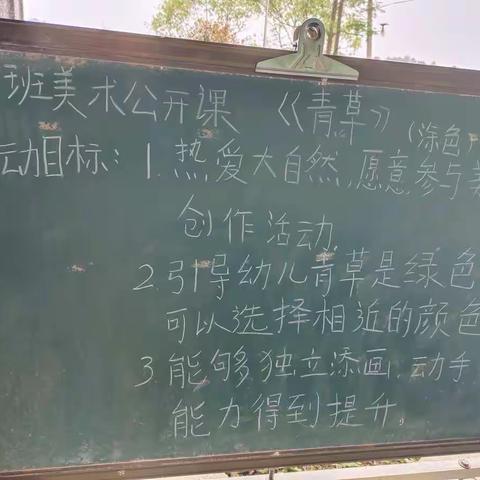 班美术公开课 《青草》(涂色
动目标:1.热爱大自然,愿意参与美
创作活动.
2.引导幼儿青草是绿色
可以选择相近的颜色
3.能够独立添画.动手
能力得到提升。